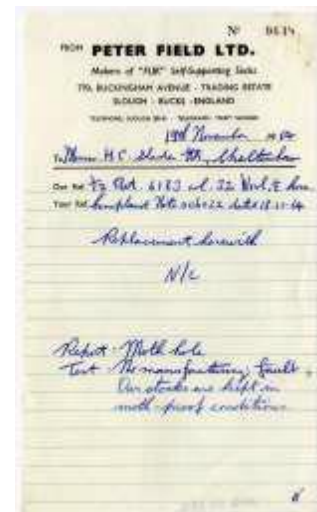 Nº
FROM PETER FIELD LTD.
Makers of "FLIK" Self-Supporting Socks
770, BUCKINGHAM AVENUE · TRADING ESTATE
SLOUGH · BUCKS · ENGLAND
19th November 1964
To Messrs H.C. Slade, Cheltenham
Our Ref. 6183 col. 32
Your Ref. Complaint Note dated 18.11.64
Replacement herewith
N/C
Report - Moth hole
Test - No manufacturing fault.
Our stocks are kept in
moth-proof conditions